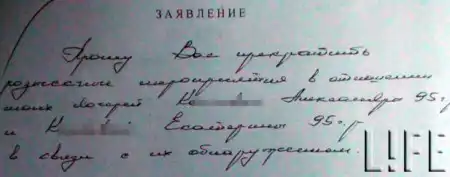 ЗАЯВЛЕНИЕ
Прошу Вас прекратить
розыскные мероприятия в отношении
моих дочерей К Александры 95 г.р
и К Екатерины 95 г.р
в связи с их обнаружением.
LIFE